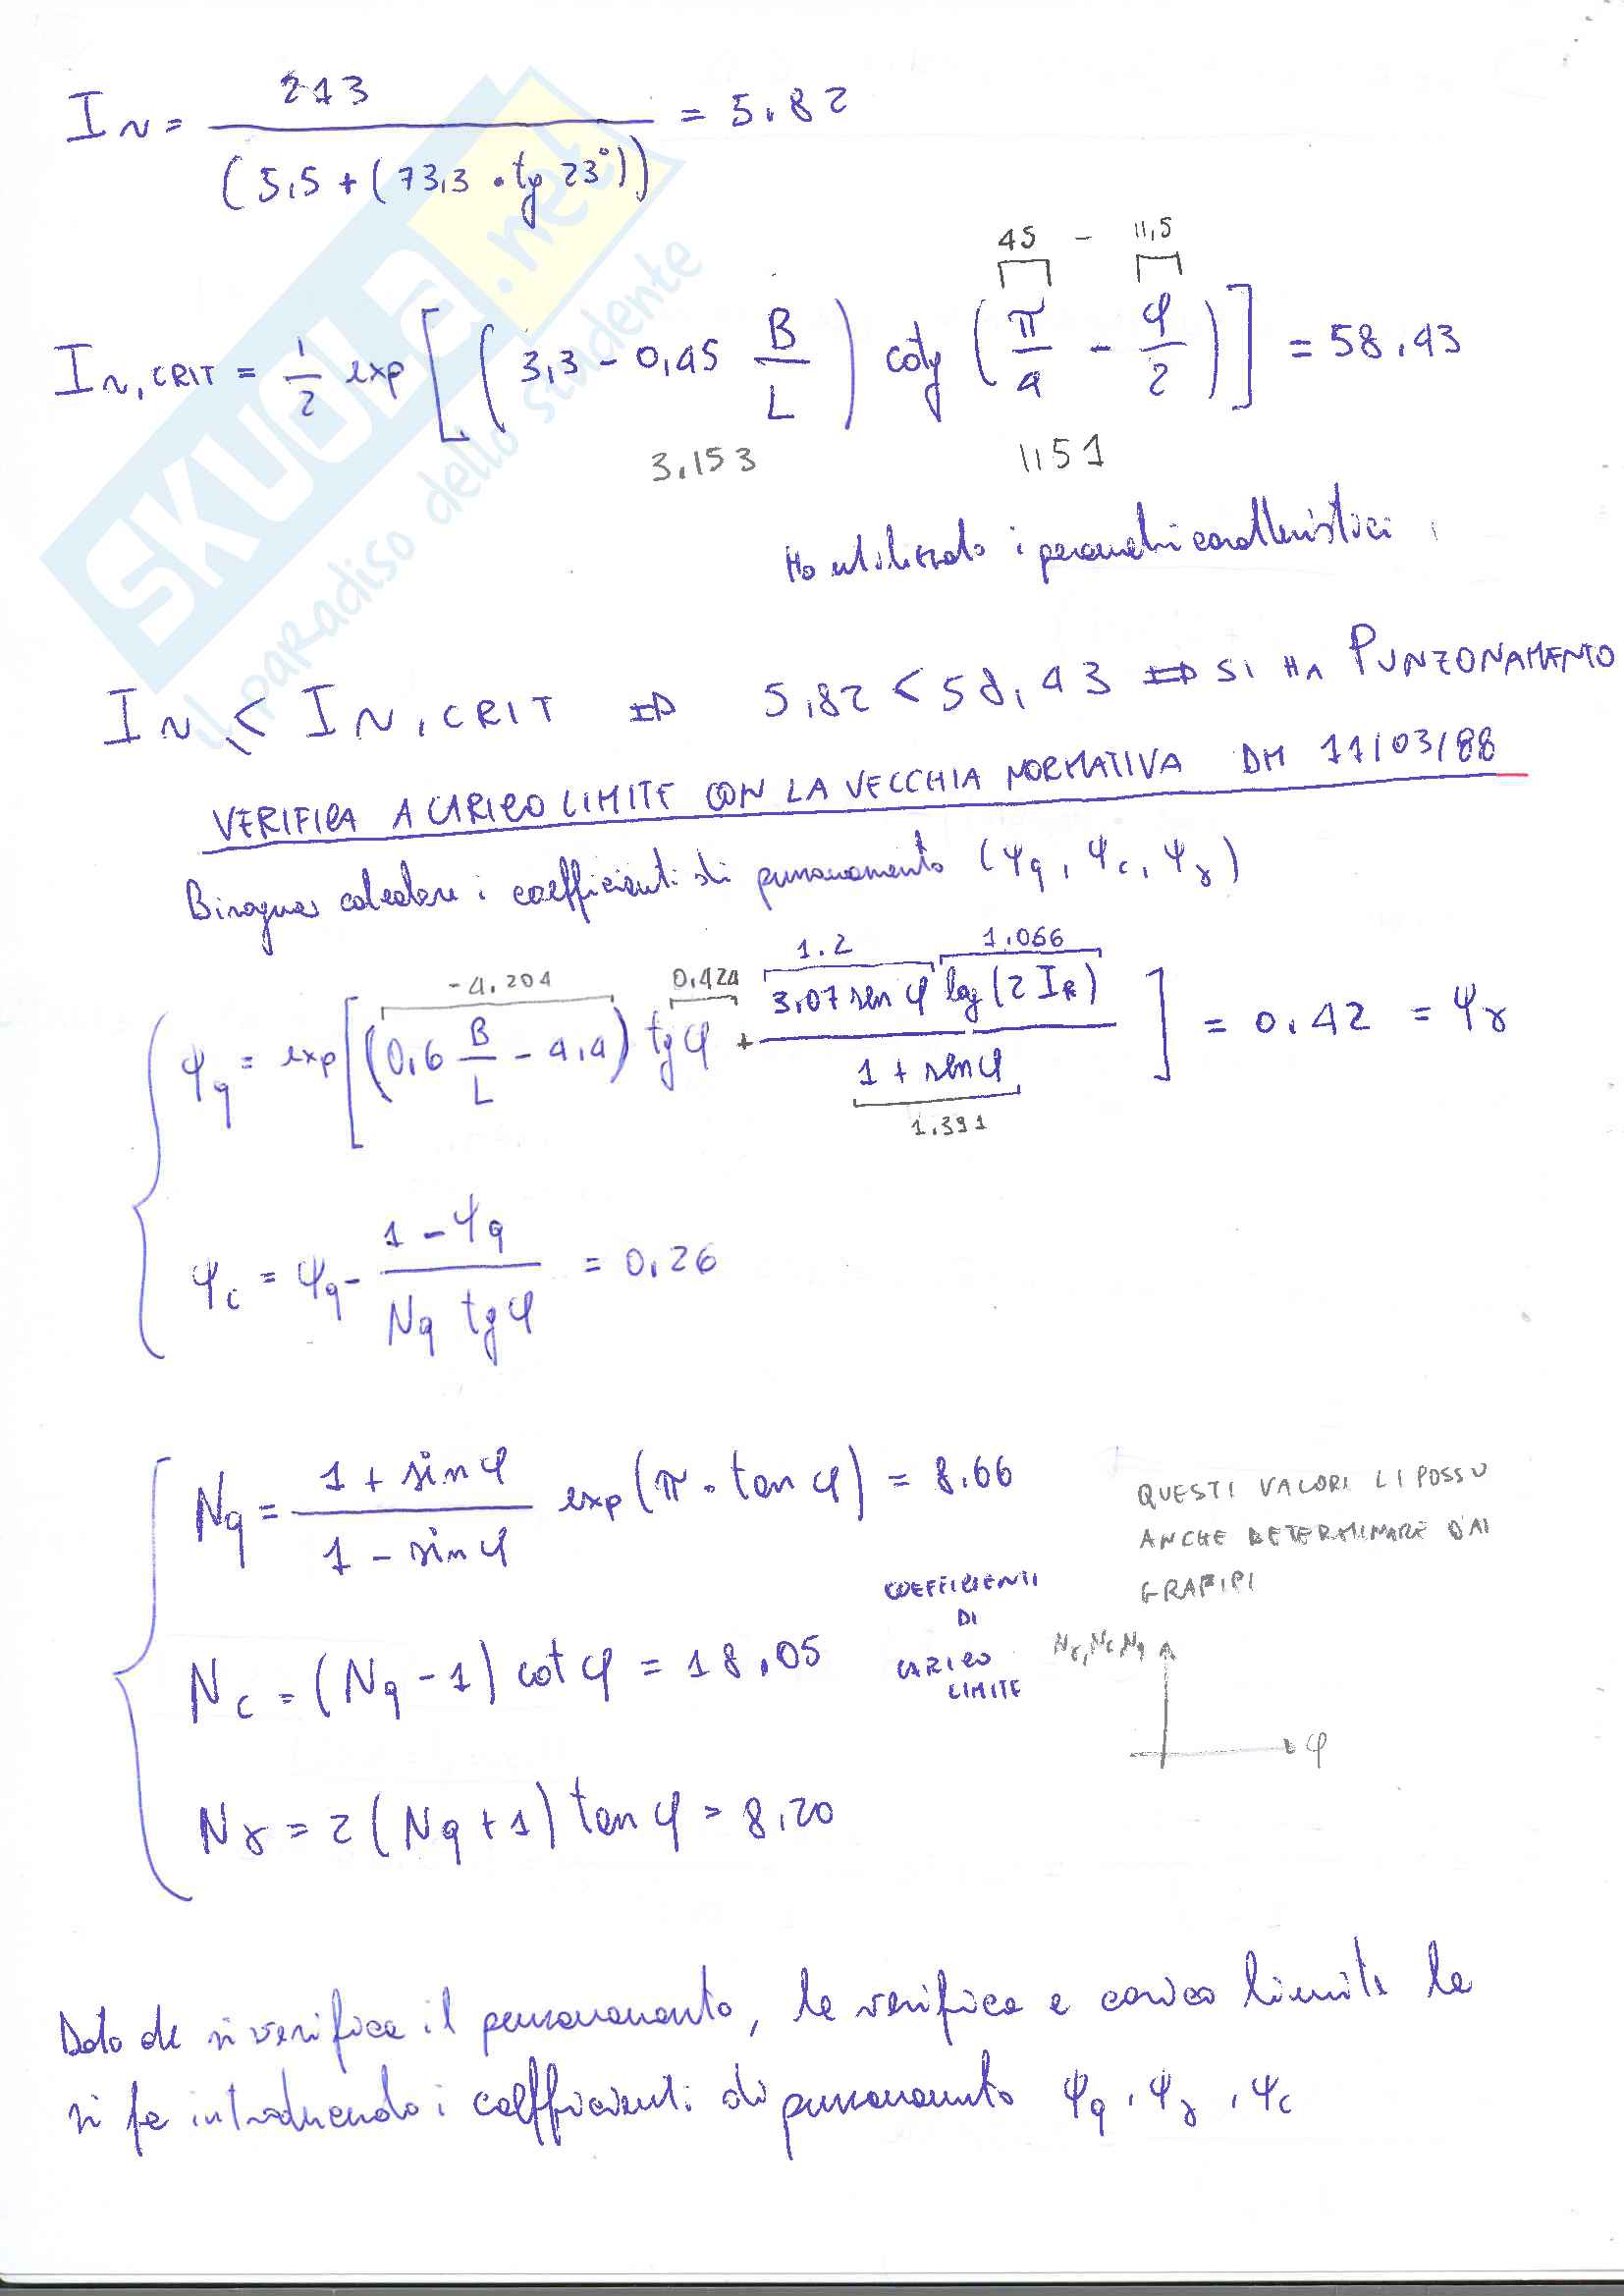 Ir = 213 / (5,5 + (73,3 · tg 23°)) = 5.82
45 - 11,5
Ir,CRIT = 1/2 exp [(3,3 - 0,45 B/L) cotg (π/4 - φ/2)] = 58.43
3.153 1,51
Ho utilizzato i parametri caratteristici
Ir < Ir,CRIT ⇒ 5,82 < 58,43 ⇒ SI HA PUNZONAMENTO
VERIFICA A CARICO LIMITE CON LA VECCHIA NORMATIVA DM 11/03/88
Bisogna calcolare i coefficienti di punzonamento (ψq, ψc, ψγ)
-4,204 0,424 1.2 1.066
ψq = exp [(0,6 B/L - 4,4) tgφ + 3,07 sen φ log(2 IR) / 1 + senφ] = 0.42 = ψγ
1.391
ψc = ψq - 1 - ψq / Nq tgφ = 0.26
Nq = 1 + sinφ / 1 - sinφ exp(π · tan φ) = 8.66
QUESTI VALORI LI POSSO
ANCHE DETERMINARE DAI
GRAFICI
Nc = (Nq - 1) cot φ = 18.05
COEFFICIENTI
DI
CARICO
LIMITE
Nγ, Nc, Nq
φ
Nγ = 2 (Nq + 1) tan φ = 8,20
Dato che si verifica il punzonamento, la verifica a carico limite la
si fa introducendo i coefficienti di punzonamento ψq, ψγ, ψc
SKUOLA.net
il paradiso dello studente